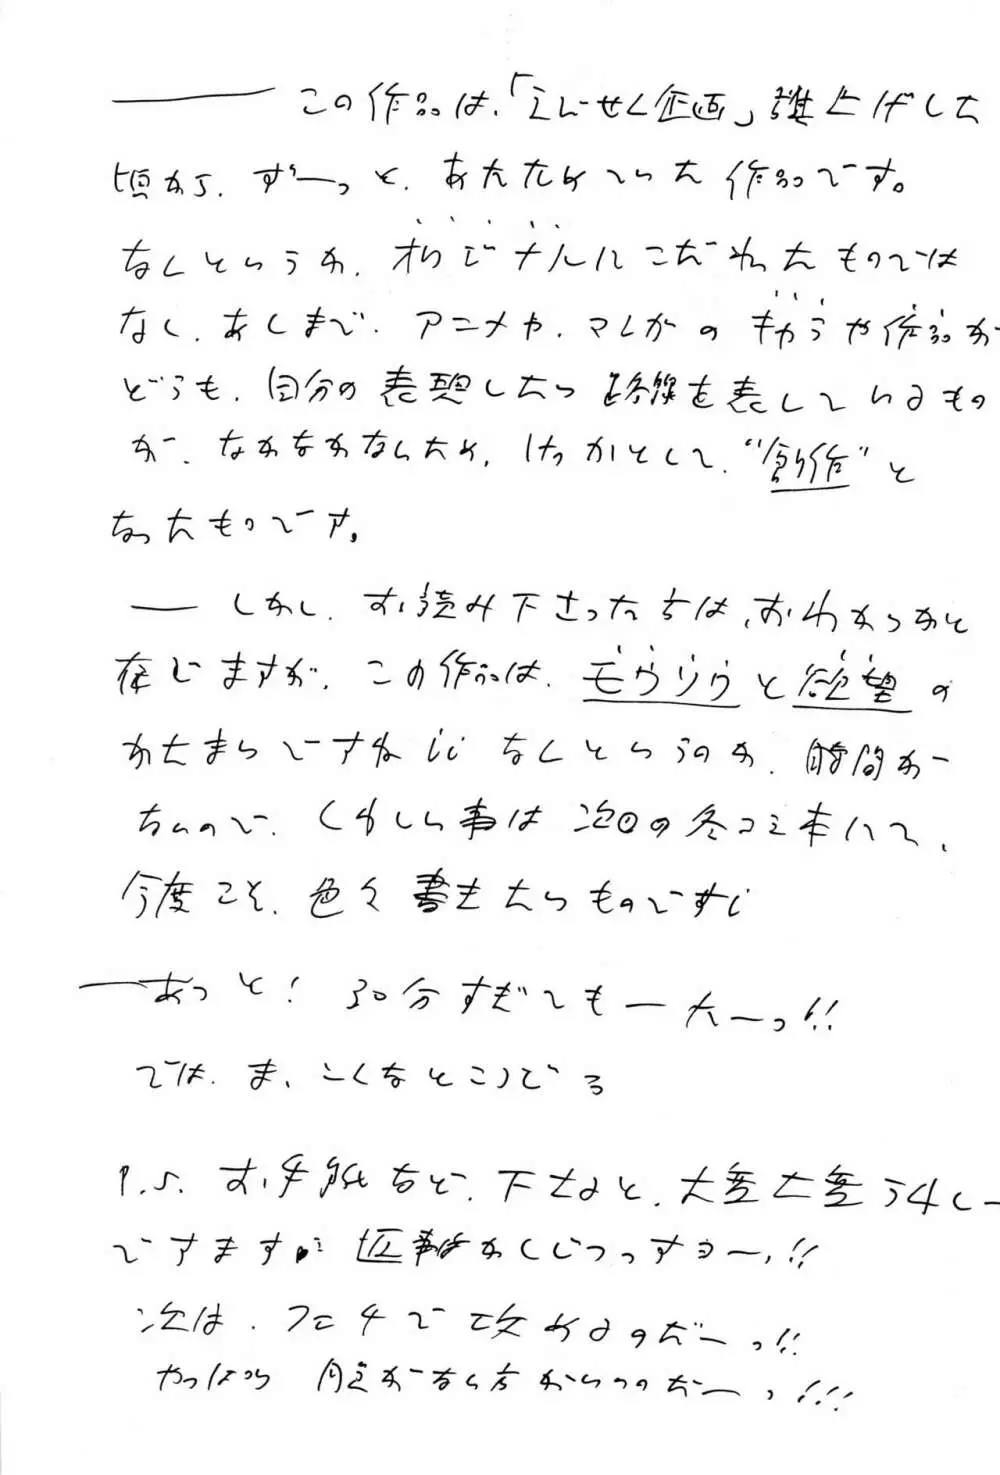 この作品は、「えんせく企画」旗上げした
頃から、ずーっと、あたためていた作品です。
なんというか、オリジナルにこだわったものでは
なく、あくまで、アニメや、マンガのキャラや作品が
どうも、自分の表現したい路線を表しているもの
が、なかなかないため、けっかとして、“創作”と
なったものです。
しかし、お読み下さった方は、おわかりかと
存じますが、この作品は、モウソウと欲望の
かたまりですね なんというのか、時間が
ないので、くわしい事は次回の冬コミ本にて、
今度こそ、色々書きたいものです
あっと! 30分すぎてもーたーっ!!
では、ま、こんなところで
P.S. お手紙など、下さると、大変大変うれしー
でする 返事はかくじつっすョー!!
次は、フェチで攻めるのだーっ!!
やっぱり がない方がいいのだーっ!!!